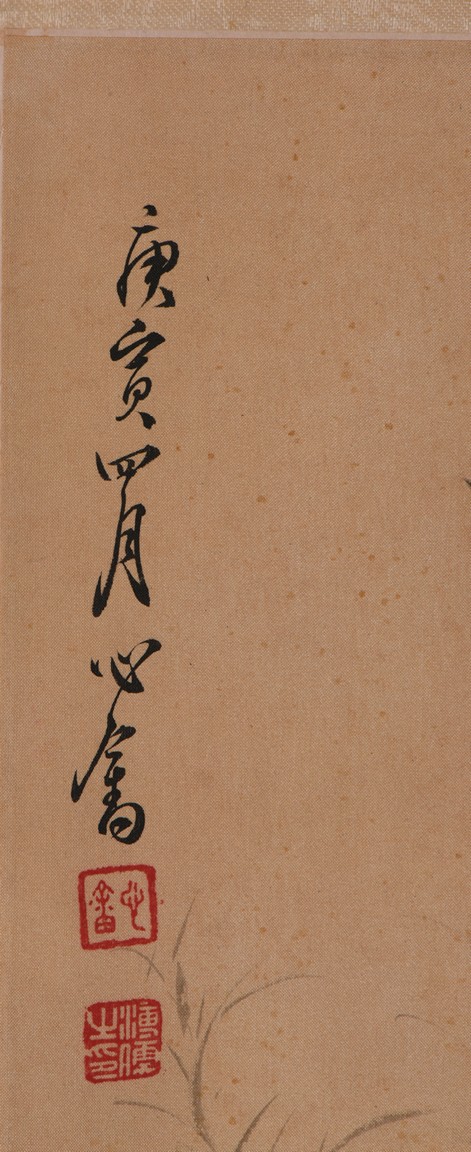 庚寅四月心畬
心畬
溥儒之印